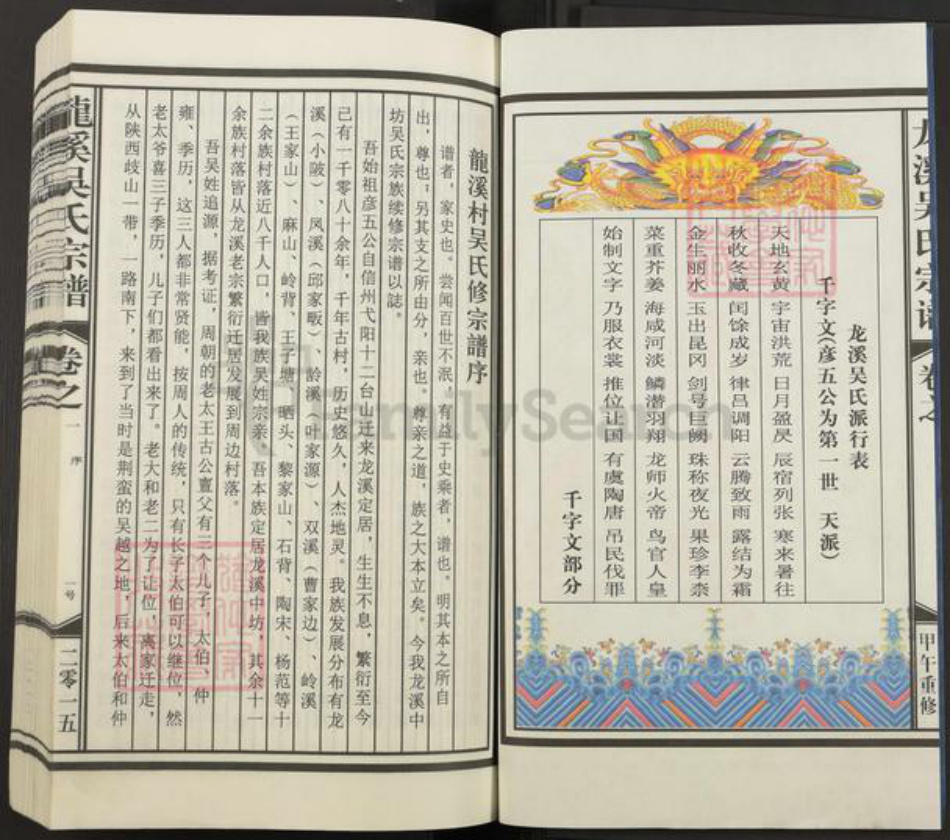 龙溪吴氏宗谱
卷之
甲午重修
龙溪吴氏派行表
千字文(彦五公为第一世 天派)
天地玄黄 宇宙洪荒 日月盈昃 辰宿列张 寒来暑往
秋收冬藏 闰馀成岁 律吕调阳 云腾致雨 露结为霜
金生丽水 玉出昆冈 剑号巨阙 珠称夜光 果珍李柰
菜重芥姜 海咸河淡 鳞潜羽翔 龙师火帝 鸟官人皇
始制文字 乃服衣裳 推位让国 有虞陶唐 吊民伐罪
千字文部分
龍溪村吴氏修宗譜序
谱者，家史也。尝闻百世不泯，有益于史乘者，谱也。明其本之所自
出，尊也；另其支之所由分，亲也。尊亲之道，族之大本立矣。今我龙溪中
坊吴氏宗族续修宗谱以誌。
吾始祖彦五公自信州弋阳十二台山迁来龙溪定居，生生不息，繁衍至今
己有一千零八十余年，千年古村，历史悠久，人杰地灵。我族发展分布有龙
溪（小陂）、凤溪（邱家畈）、龄溪（叶家源）、双溪（曹家边）、岭溪
（王家山）、麻山、岭背、王子塘、晒头、黎家山、石背、陶宋、杨范等十
二余族村落近八千人口，皆我族吴姓宗亲。吾本族定居龙溪中坊，其余十一
余族村落皆从龙溪老宗繁衍迁居发展到周边村落。
吾吴姓追源，据考证，周朝的老太王古公亶父有三个儿子，太伯、仲
雍、季历，这三人都非常贤能，按周人的传统，只有长子太伯可以继位，然
老太爷喜三子季历，儿子们都看出来了。老大和老二为了让位，离家迁走，
从陕西歧山一带，一路南下，来到了当时是荆蛮的吴越之地，后来太伯和仲
龍溪吴氏宗譜
卷之一
序
一号
二零一五
FamilySearch